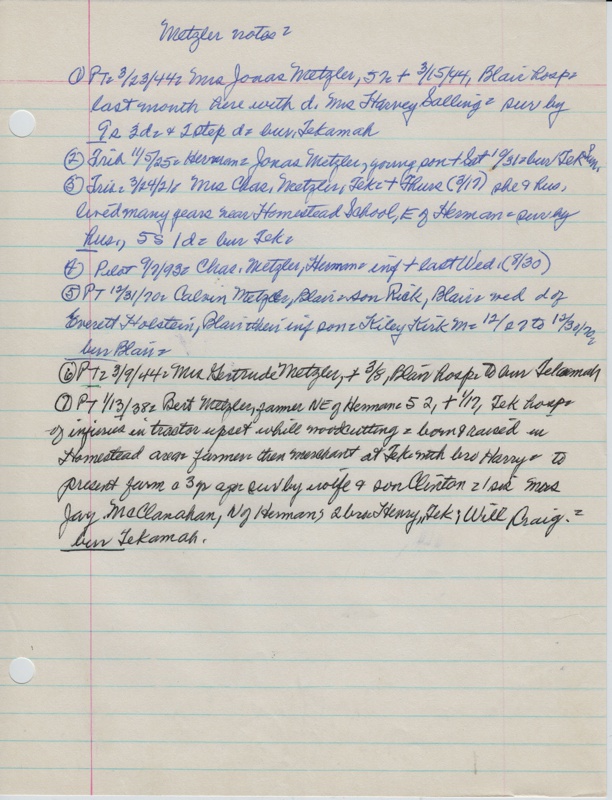 Metzler notes =
① PT= 3/23/44= Mrs Jonas Metzler, 52 + 3/15/44, Blair hosp=
last month here with d. Mrs Harvey Salling= surv by
9s 3d= & 2 step d= bur. Tekamah
② Trib 11/5/25= Herman= Jonas Metzler, young son + Sat 10/31= bur Tek
③ Trib= 3/24/21= Mrs Chas. Metzler, Tek= + Thurs (3/17) she & hus.
lived many years near Homestead School, E of Herman= surv by
hus., 5S 1d= bur Tek=
④ Pilot 9/7/93= Chas. Metzler, Herman= inf + last Wed. (8/30)
⑤ PT 12/31/70= Calvin Metzler, Blair= son Rick, Blair= wed d of
Everett Holstein, Blair= their inf son= Kiley Kirk M= 12/27 to 12/30/70=
bur Blair=
⑥ PT= 3/9/44= Mrs Gertrude Metzler, + 3/8, Blair hosp= to bur Tekamah
⑦ PT 1/13/38= Bert Metzler, farmer NE of Herman= 52, + 1/17, Tek hosp=
of injuries in tractor upset while woodcutting= born & raised in
Homestead area= farmer= then merchant at Tek with bro Harry= to
present farm a 3 yr ago surv by wife & son Clinton= 1 sis Mrs
Jay McClanahan, N of Herman; 2 bro= Henry, Tek; Will Craig.=
bur Tekamah.